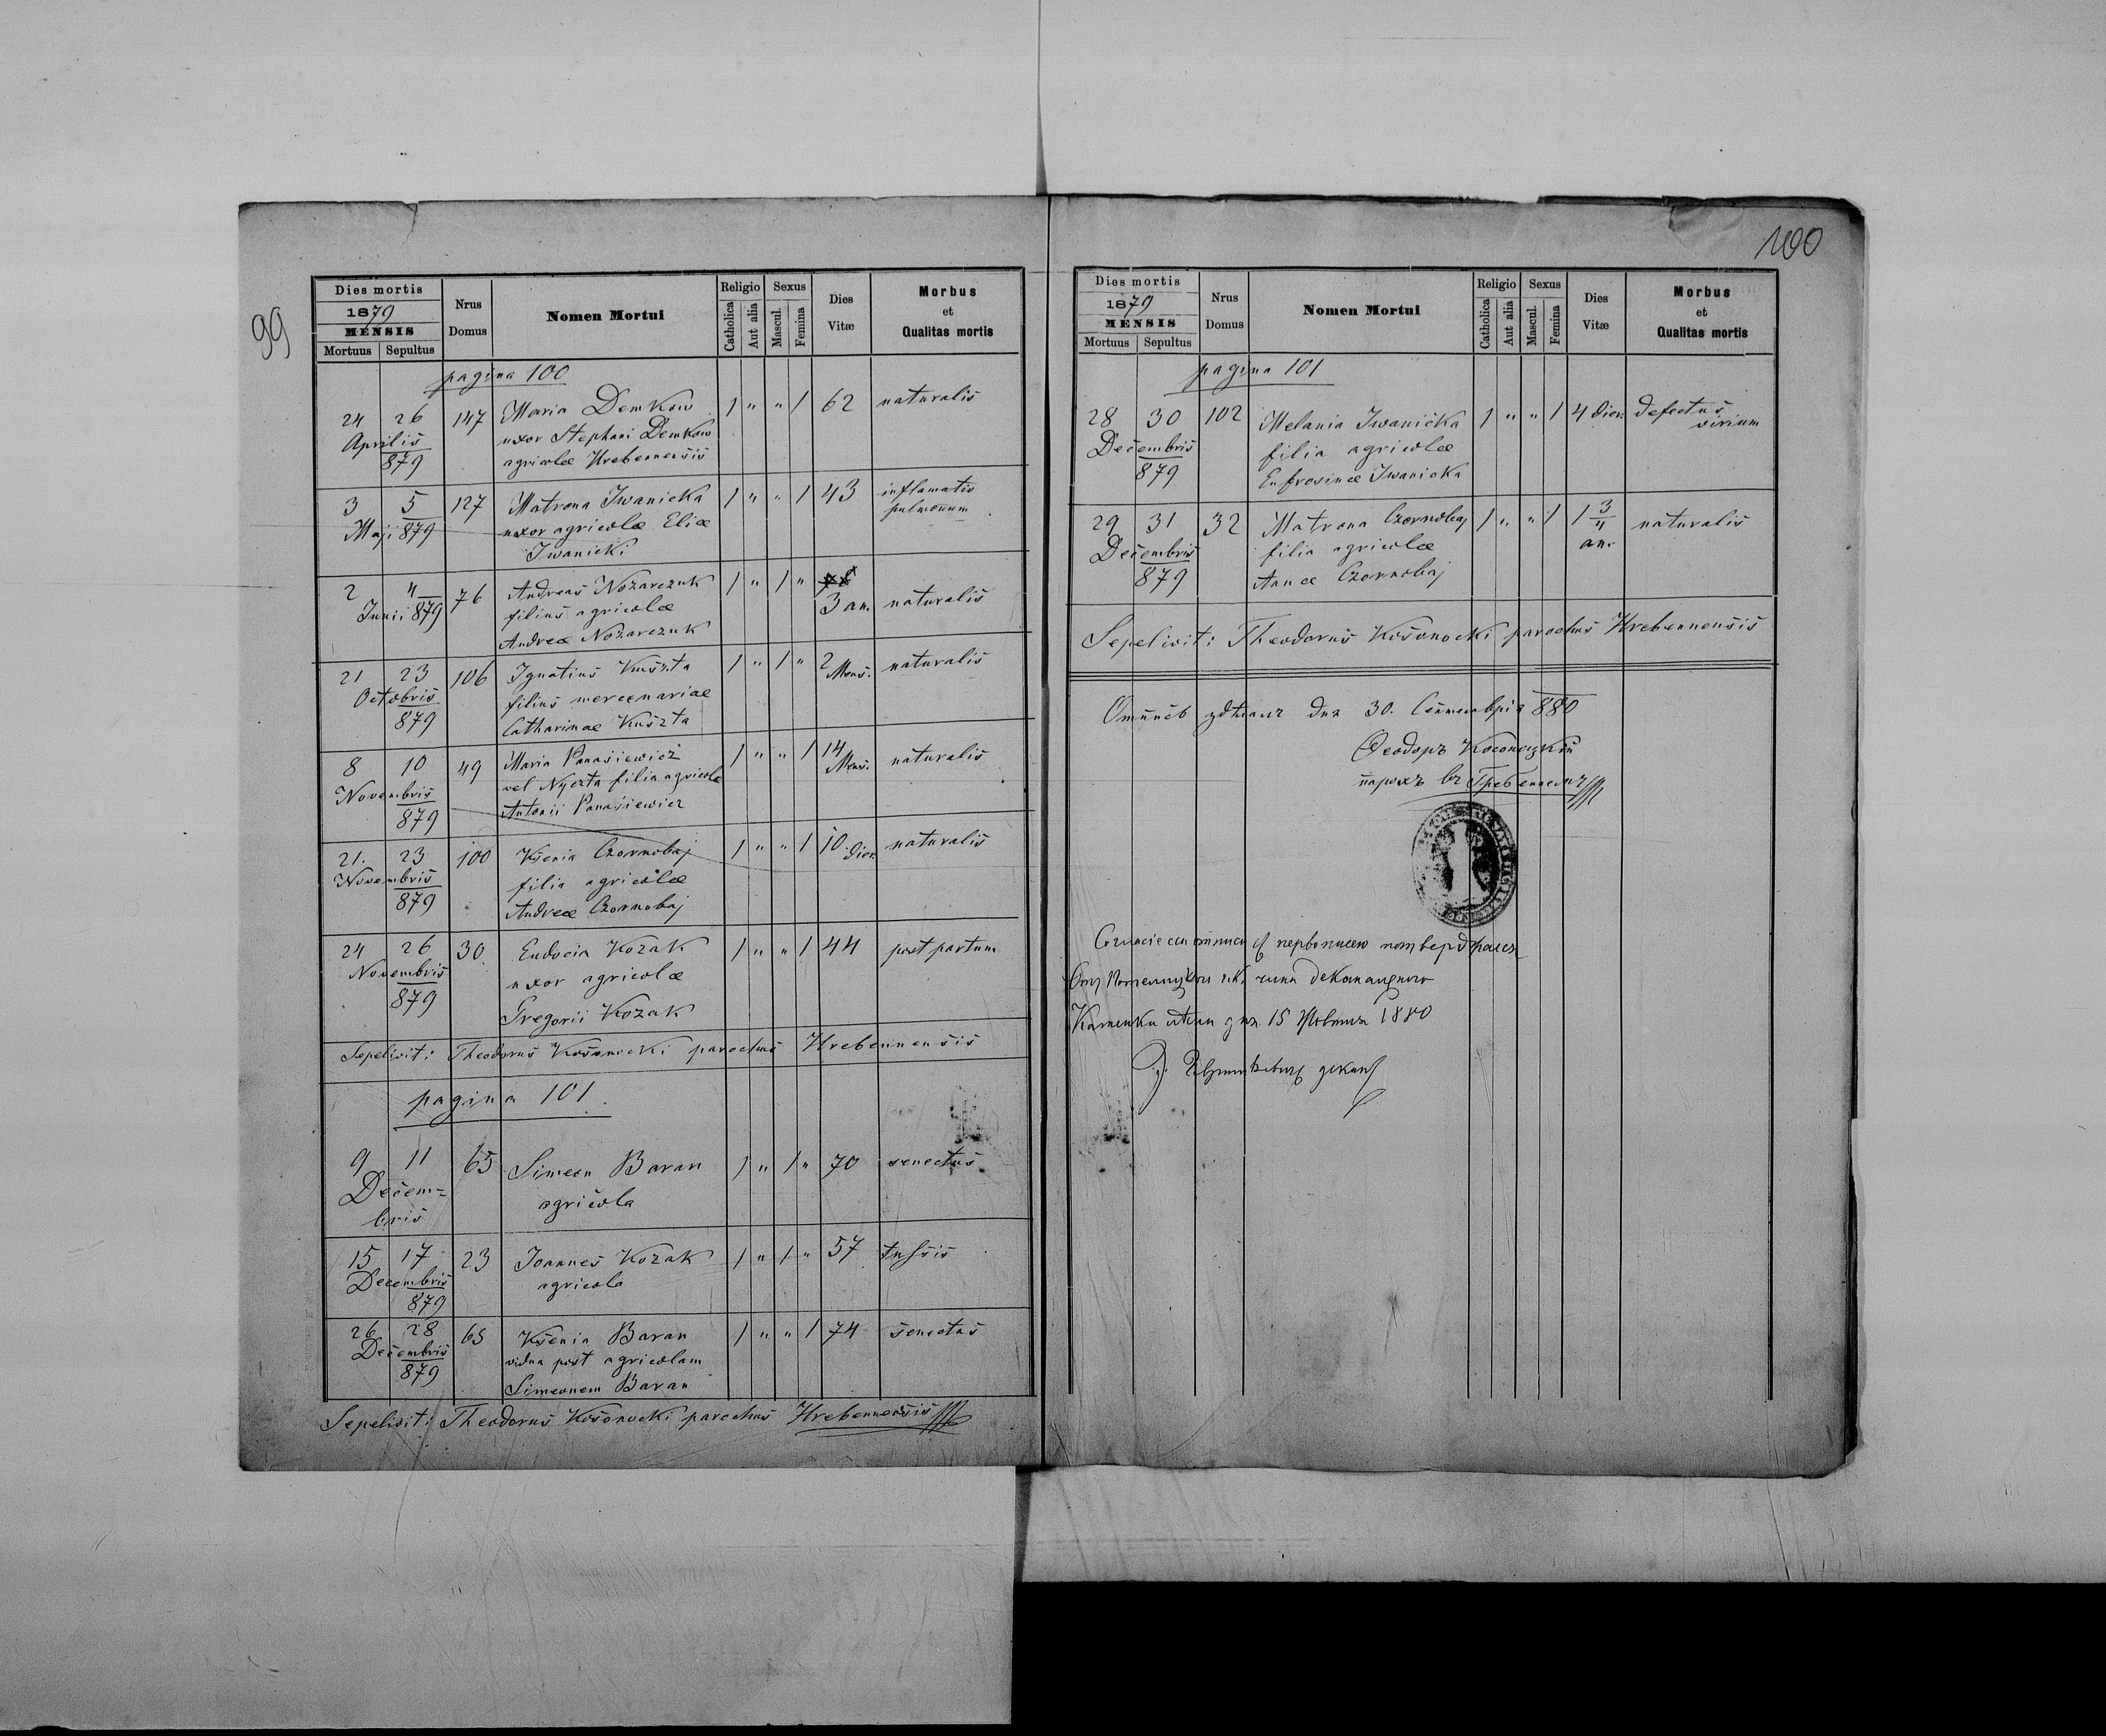 99
Dies mortis
1879
MENSIS
Mortuus Sepultus
Nrus
Domus
Nomen Mortui
Religio
Catholica
Aut alia
Sexus
Mascul.
Femina
Dies
Vitæ
Morbus
et
Qualitas mortis
pagina 100
24 26 147 Maria Demkow 1 " " 1 62 naturalis
Aprilis uxor Stephani Demkow
879 agricolæ Hrebennensis
3 5 127 Matrona Iwanicka 1 " " 1 43 inflamatio
pulmonum
Maji 879 uxor agricolæ Eliæ
Iwanicki
2 " 76 Andreas Nožarczuk 1 " 1 "
Junii 879 filius agricolæ 3 an. naturalis
Andreæ Nožarczuk
21 23 106 Ignatius Kuszta 1 " 1 " 2 Mens. naturalis
Octobris filius mercenariae
879 Catharinae Kuszta
8 10 49 Maria Panasiewicz 1 " " 1 14 Mens. naturalis
Novembris vel Nyczta filia agricolæ
879 Antonii Panasiewicz
21. 23 100 Ksenia Czornobaj 1 " " 1 10 dier. naturalis
Novembris filia agricolæ
879 Andreæ Czornobaj
24 26 30 Eudocia Kozak 1 " " 1 44 post partum
Novembris uxor agricolæ
879 Gregorii Kozak
Sepelivit: Theodorus Kosonocki parochus Hrebennensis
pagina 101.
9 11 65 Simeon Baran 1 " 1 " 70 senectus
Decem= agricola
bris
15 17 23 Joannes Kozak 1 " 1 " 57 tussis
Decembris agricola
879
26 28 65 Ksenia Baran 1 " " 1 74 senectus
Decembris vidua post agricolam
879 Simeonem Baran
Sepelivit: Theodorus Kosonocki parochus Hrebennensis
100
Dies mortis
1879
MENSIS
Mortuus Sepultus
Nrus
Domus
Nomen Mortui
Religio
Catholica
Aut alia
Sexus
Mascul.
Femina
Dies
Vitæ
Morbus
et
Qualitas mortis
pagina 101
28 30 102 Melania Iwanicka 1 " " 1 4 dier. defectus
virium
Decembris filia agricolæ
879 Eufrosinæ Iwanicka
29 31 32 Matrona Czornobaj 1 " " 1 1 3/" an. naturalis
Decembris filia agricolæ
879 Annæ Czornobaj
Sepelivit: Theodorus Kosonocki parochus Hrebennensis
дня 30. Септемврія 880
Ѳеодоръ Косоноцкій
парохъ въ Гребенном
отписи с первописею потверджаеся
деканадного
Каменка дня 15 1880
декан